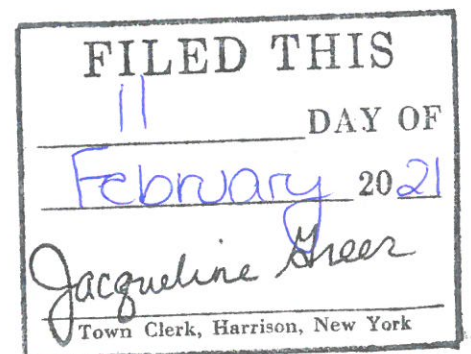 FILED THIS
11 DAY OF
February 2021
Jacqueline Greer
Town Clerk, Harrison, New York